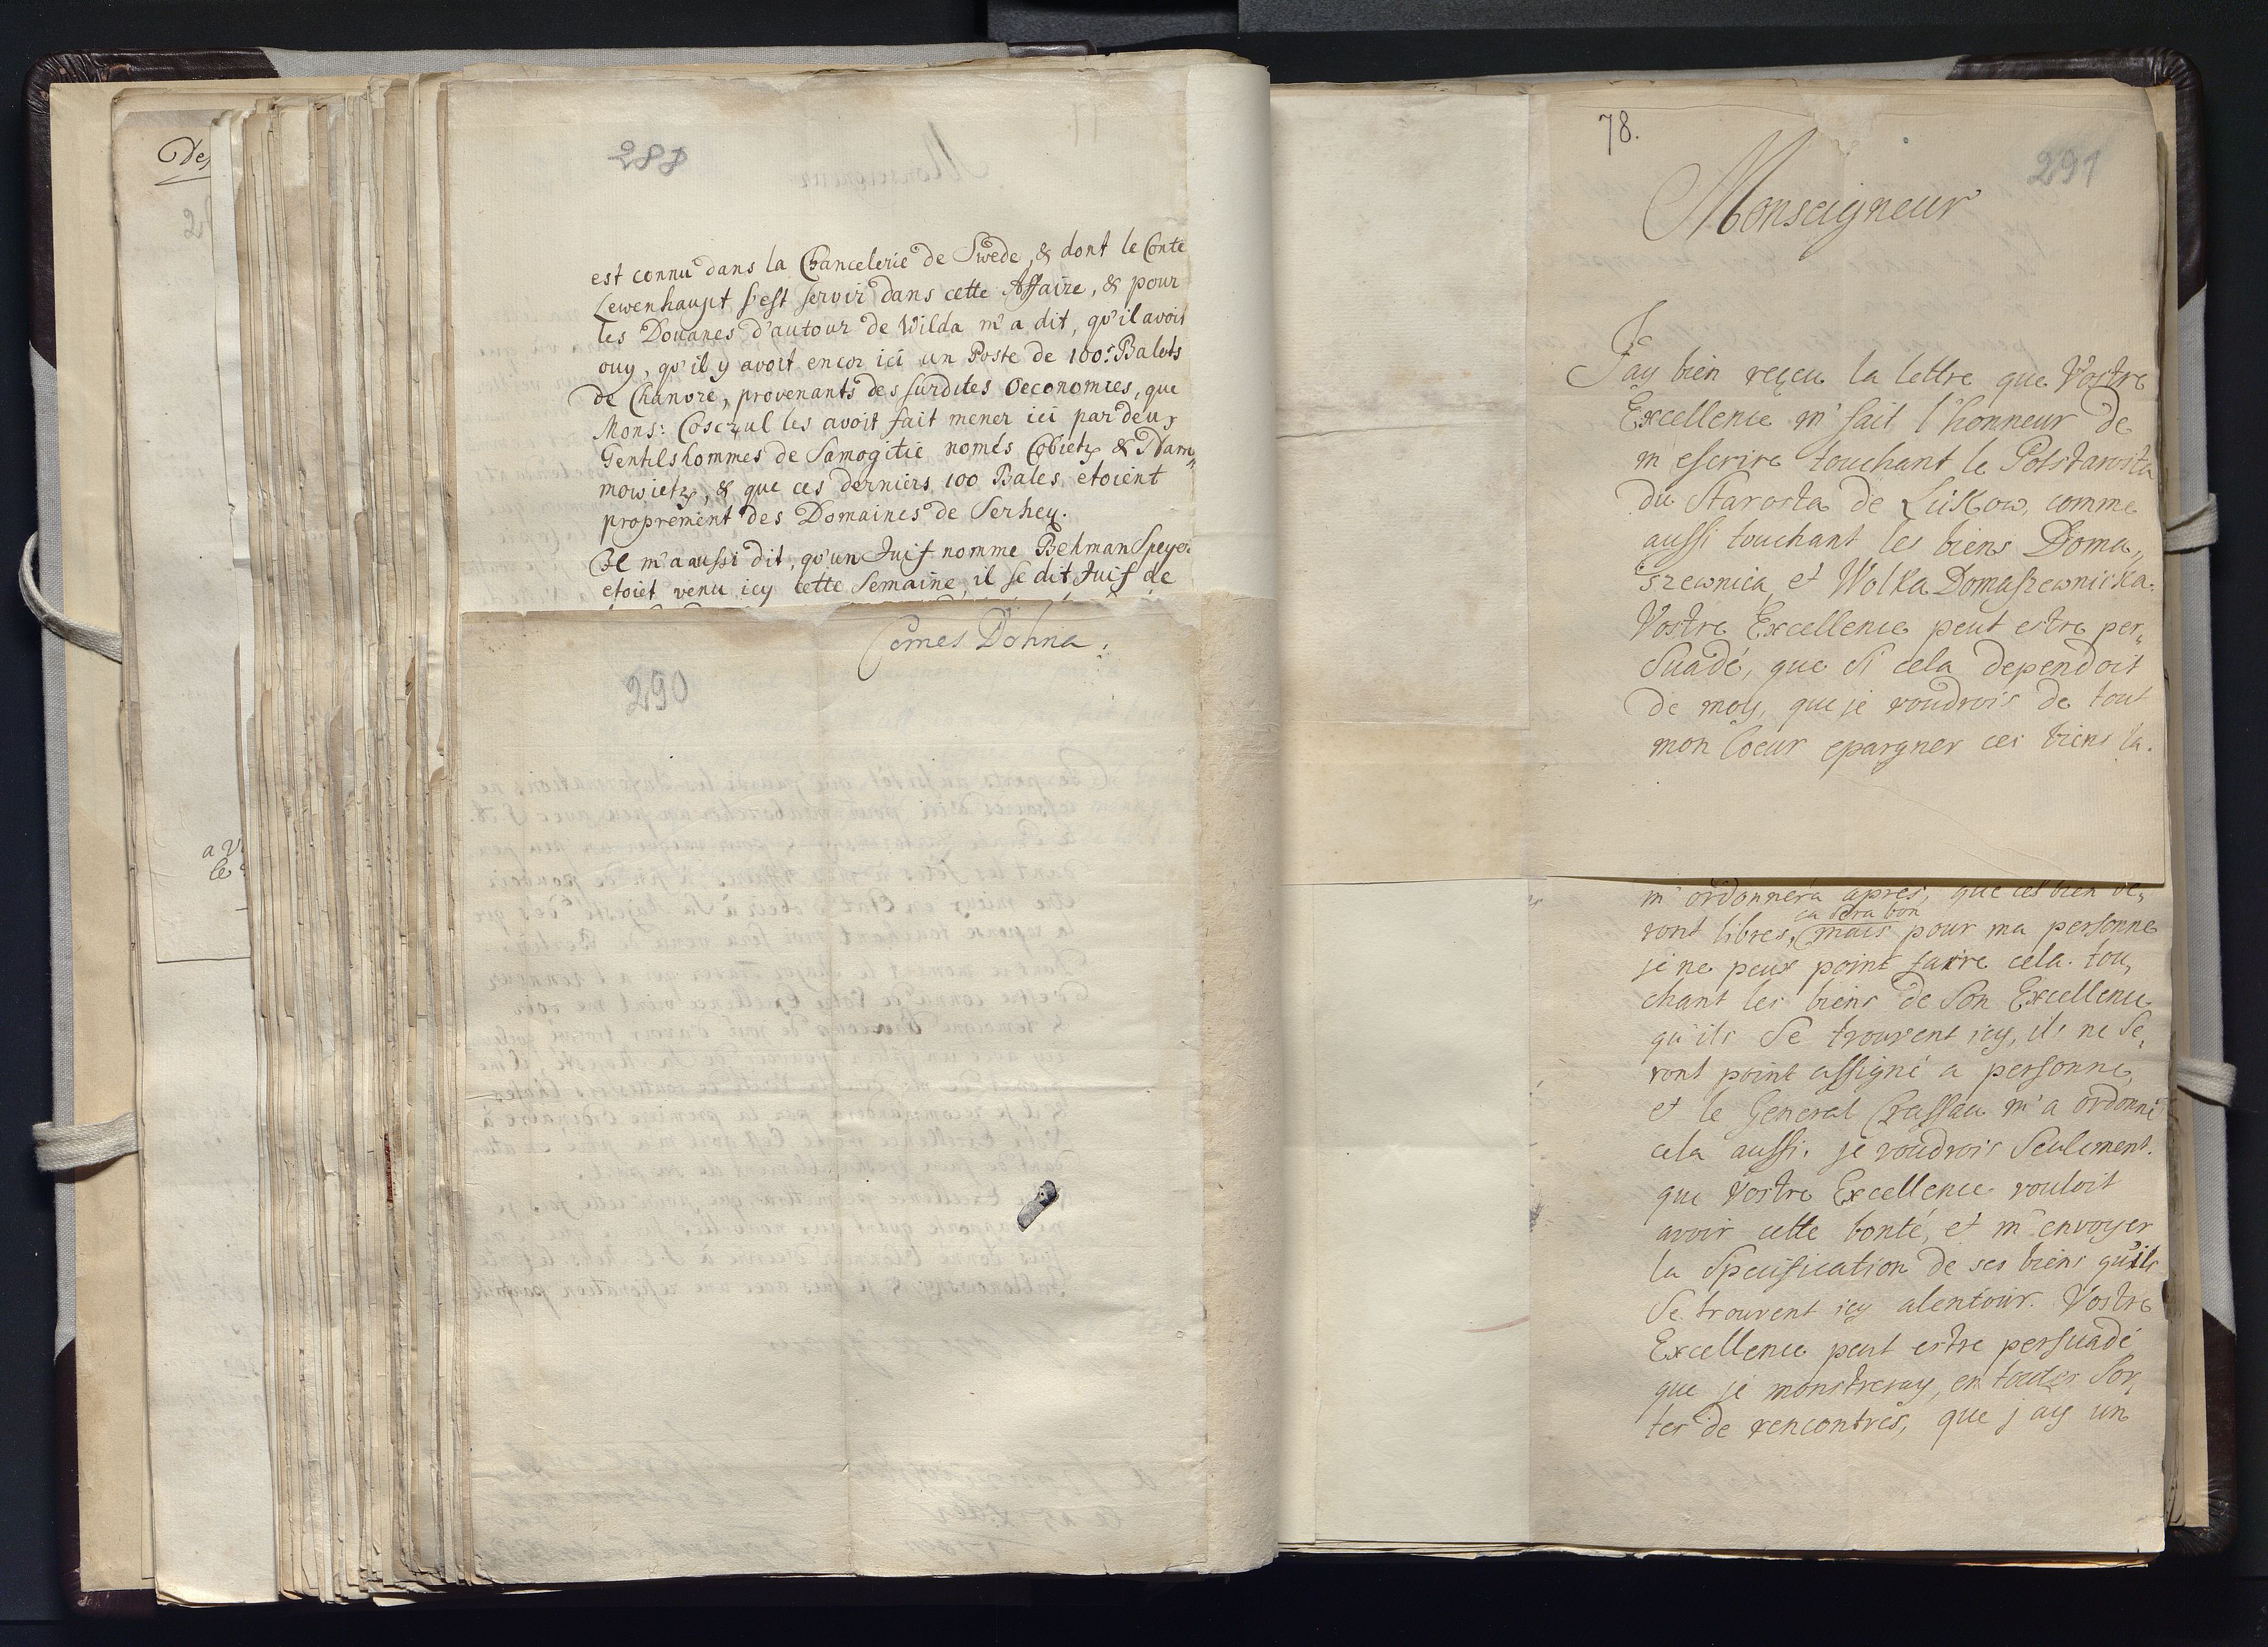 288
est connu dans la Chancelerie de Swede, & dont le Conte
Lewenhaupt s'est servir dans cette Affaire, & pour
les Douanes d'autour de Wilda m'a dit, qu'il avoit
ouy, qu'il y avoit encor ici un Poste de 100. Balots
de Chanvre, provenants des surdites Oeconomies, que
Mons: Cosczul les avoit fait mener ici par deux
Gentilshommes de Samogitie només Cobietz &
mowietz, & que ces derniers 100 Bales etoient
proprement des Domaines de Serhey.
Il m'a aussi dit, qu'un Juif nomme Behman Speyer
etoiet venu icy cette Semaine, il se dit Juif de
Comes Dohna
290
De
2
a
le
78.
291
Monseigneur
J'ay bien reçeu la lettre que Vostre
Excellence m'fait l'honneur de
m'escrire touchant le Potstarosta
du Starosta de Luikow, comme
aussi touchant les biens Doma„
szewnica et Wolka Domaszewnicka.
Vostre Excellence peut estre per„
suadé, que si cela dependoit
de moy, que je voudrois de tout
mon Coeur epargner ces biens la.
m'ordonnera apres, que ces bien se„
ca sera bon
ront libres, mais pour ma personne
je ne peux point faire cela. tou„
chant les biens de Son Excellence
qu'ils se trouvent icy, ils ne se„
ront point assigné a personne,
et le General Crassau m'a ordonné
cela aussi. je voudrois seulement.
que Vostre Excellence vouloit
avoir cette bonté, et m'envoyer
la Specification de ses biens qu'ils
se trouvent icy alentour. Vostre
Excellence peut estre persuadé
que je monstreray, en toutes sor„
tes de rencontres, que j'ay un